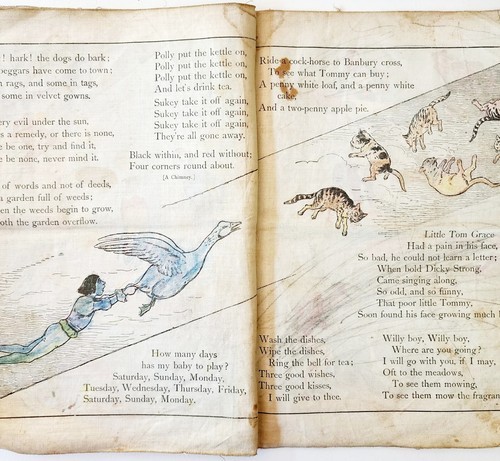 ! hark! the dogs do bark;
beggars have come to town;
n rags, and some in tags,
some in velvet gowns.
ery evil under the sun,
s a remedy, or there is none,
e be one, try and find it,
e be none, never mind it.
of words and not of deeds,
a garden full of weeds;
en the weeds begin to grow,
oth the garden overflow.
Polly put the kettle on,
Polly put the kettle on,
Polly put the kettle on,
And let's drink tea.
Sukey take it off again,
Sukey take it off again,
Sukey take it off again,
They're all away.
Black within, and red without;
Four corners round about.
[A Chimney.]
How many days
has my baby to play?
Saturday, Sunday, Monday,
Tuesday, Wednesday, Thursday, Friday,
Saturday, Sunday, Monday.
Ride a cock-horse to Banbury cross,
To see what Tommy can buy;
A penny white loaf, and a penny white
cake,
And a two-penny apple pie.
Little Tom Grace
Had a pain in his face,
So bad, he could not learn a letter;
When bold Dicky Strong,
Came singing along,
So odd, and so funny,
That poor little Tommy,
Soon found his face growing much b
Wash the dishes,
Wipe the dishes,
Ring the bell for tea;
Three good wishes,
Three good kisses,
I will give to thee.
Willy boy, Willy boy,
Where are you going?
I will go with you, if I may,
Oft to the meadows,
To see them mowing,
To see them mow the fragran